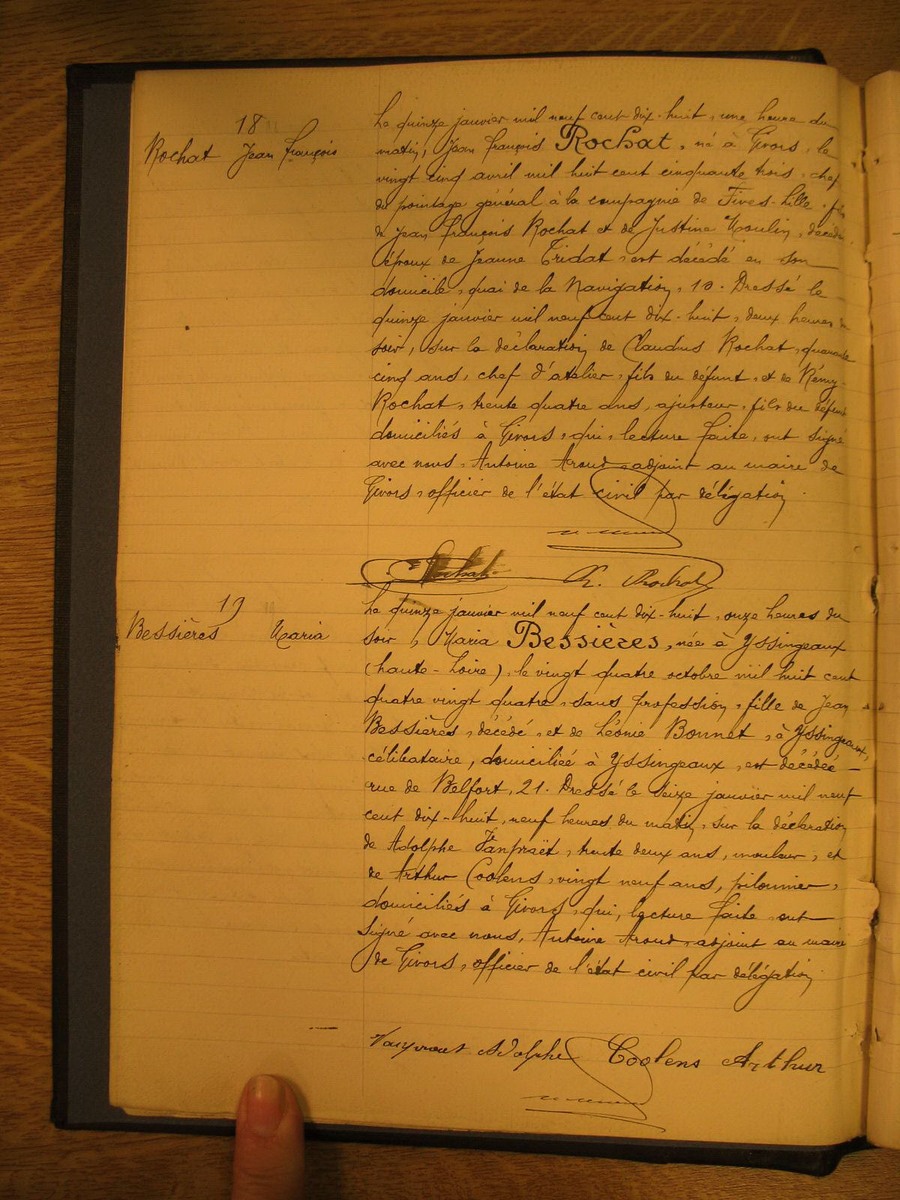 18
Rochat Jean François
Le quinze janvier mil neuf cent dix-huit, une heure du
matin, Jean François Rochat, né à Givors, le
vingt cinq avril mil huit cent cinquante trois, chef
du pointage général à la compagnie de Fives-Lille, fils
de Jean François Rochat et de Justine Moulin, décédés
époux de Jeanne Tridat, est décédé en son
domicile, quai de la Navigation, 10. Dressé le
quinze janvier mil neuf cent dix-huit, deux heures du
soir, sur la déclaration de Claudius Rochat, quarante
cinq ans, chef d'atelier, fils du défunt, et de Rémy
Rochat, trente quatre ans, ajusteur, fils du défunt
domiciliés à Givors, qui, lecture faite, ont signé
avec nous, Antoine Aroud, adjoint au maire de
Givors, officier de l'état civil par délégation.
Rochat R. Rochat
19
Bessières Maria
Le quinze janvier mil neuf cent dix-huit, onze heures du
soir, Maria Bessières, née à Yssingeaux
(haute-Loire), le vingt quatre octobre mil huit cent
quatre vingt quatre, sans profession, fille de Jean
Bessières, décédé, et de Léonie Bonnet, à Yssingeaux,
célibataire, domiciliée à Yssingeaux, est décédée
rue de Belfort, 21. Dressé le seize janvier mil neuf
cent dix-huit, neuf heures du matin, sur la déclaration
de Adolphe, trente deux ans, mouleur, et
de Arthur Coolens, vingt neuf ans, pilonnier,
domiciliés à Givors, qui, lecture faite, ont
signé avec nous, Antoine Aroud, adjoint au maire
de Givors, officier de l'état civil par délégation.
Adolphe Coolens Arthur